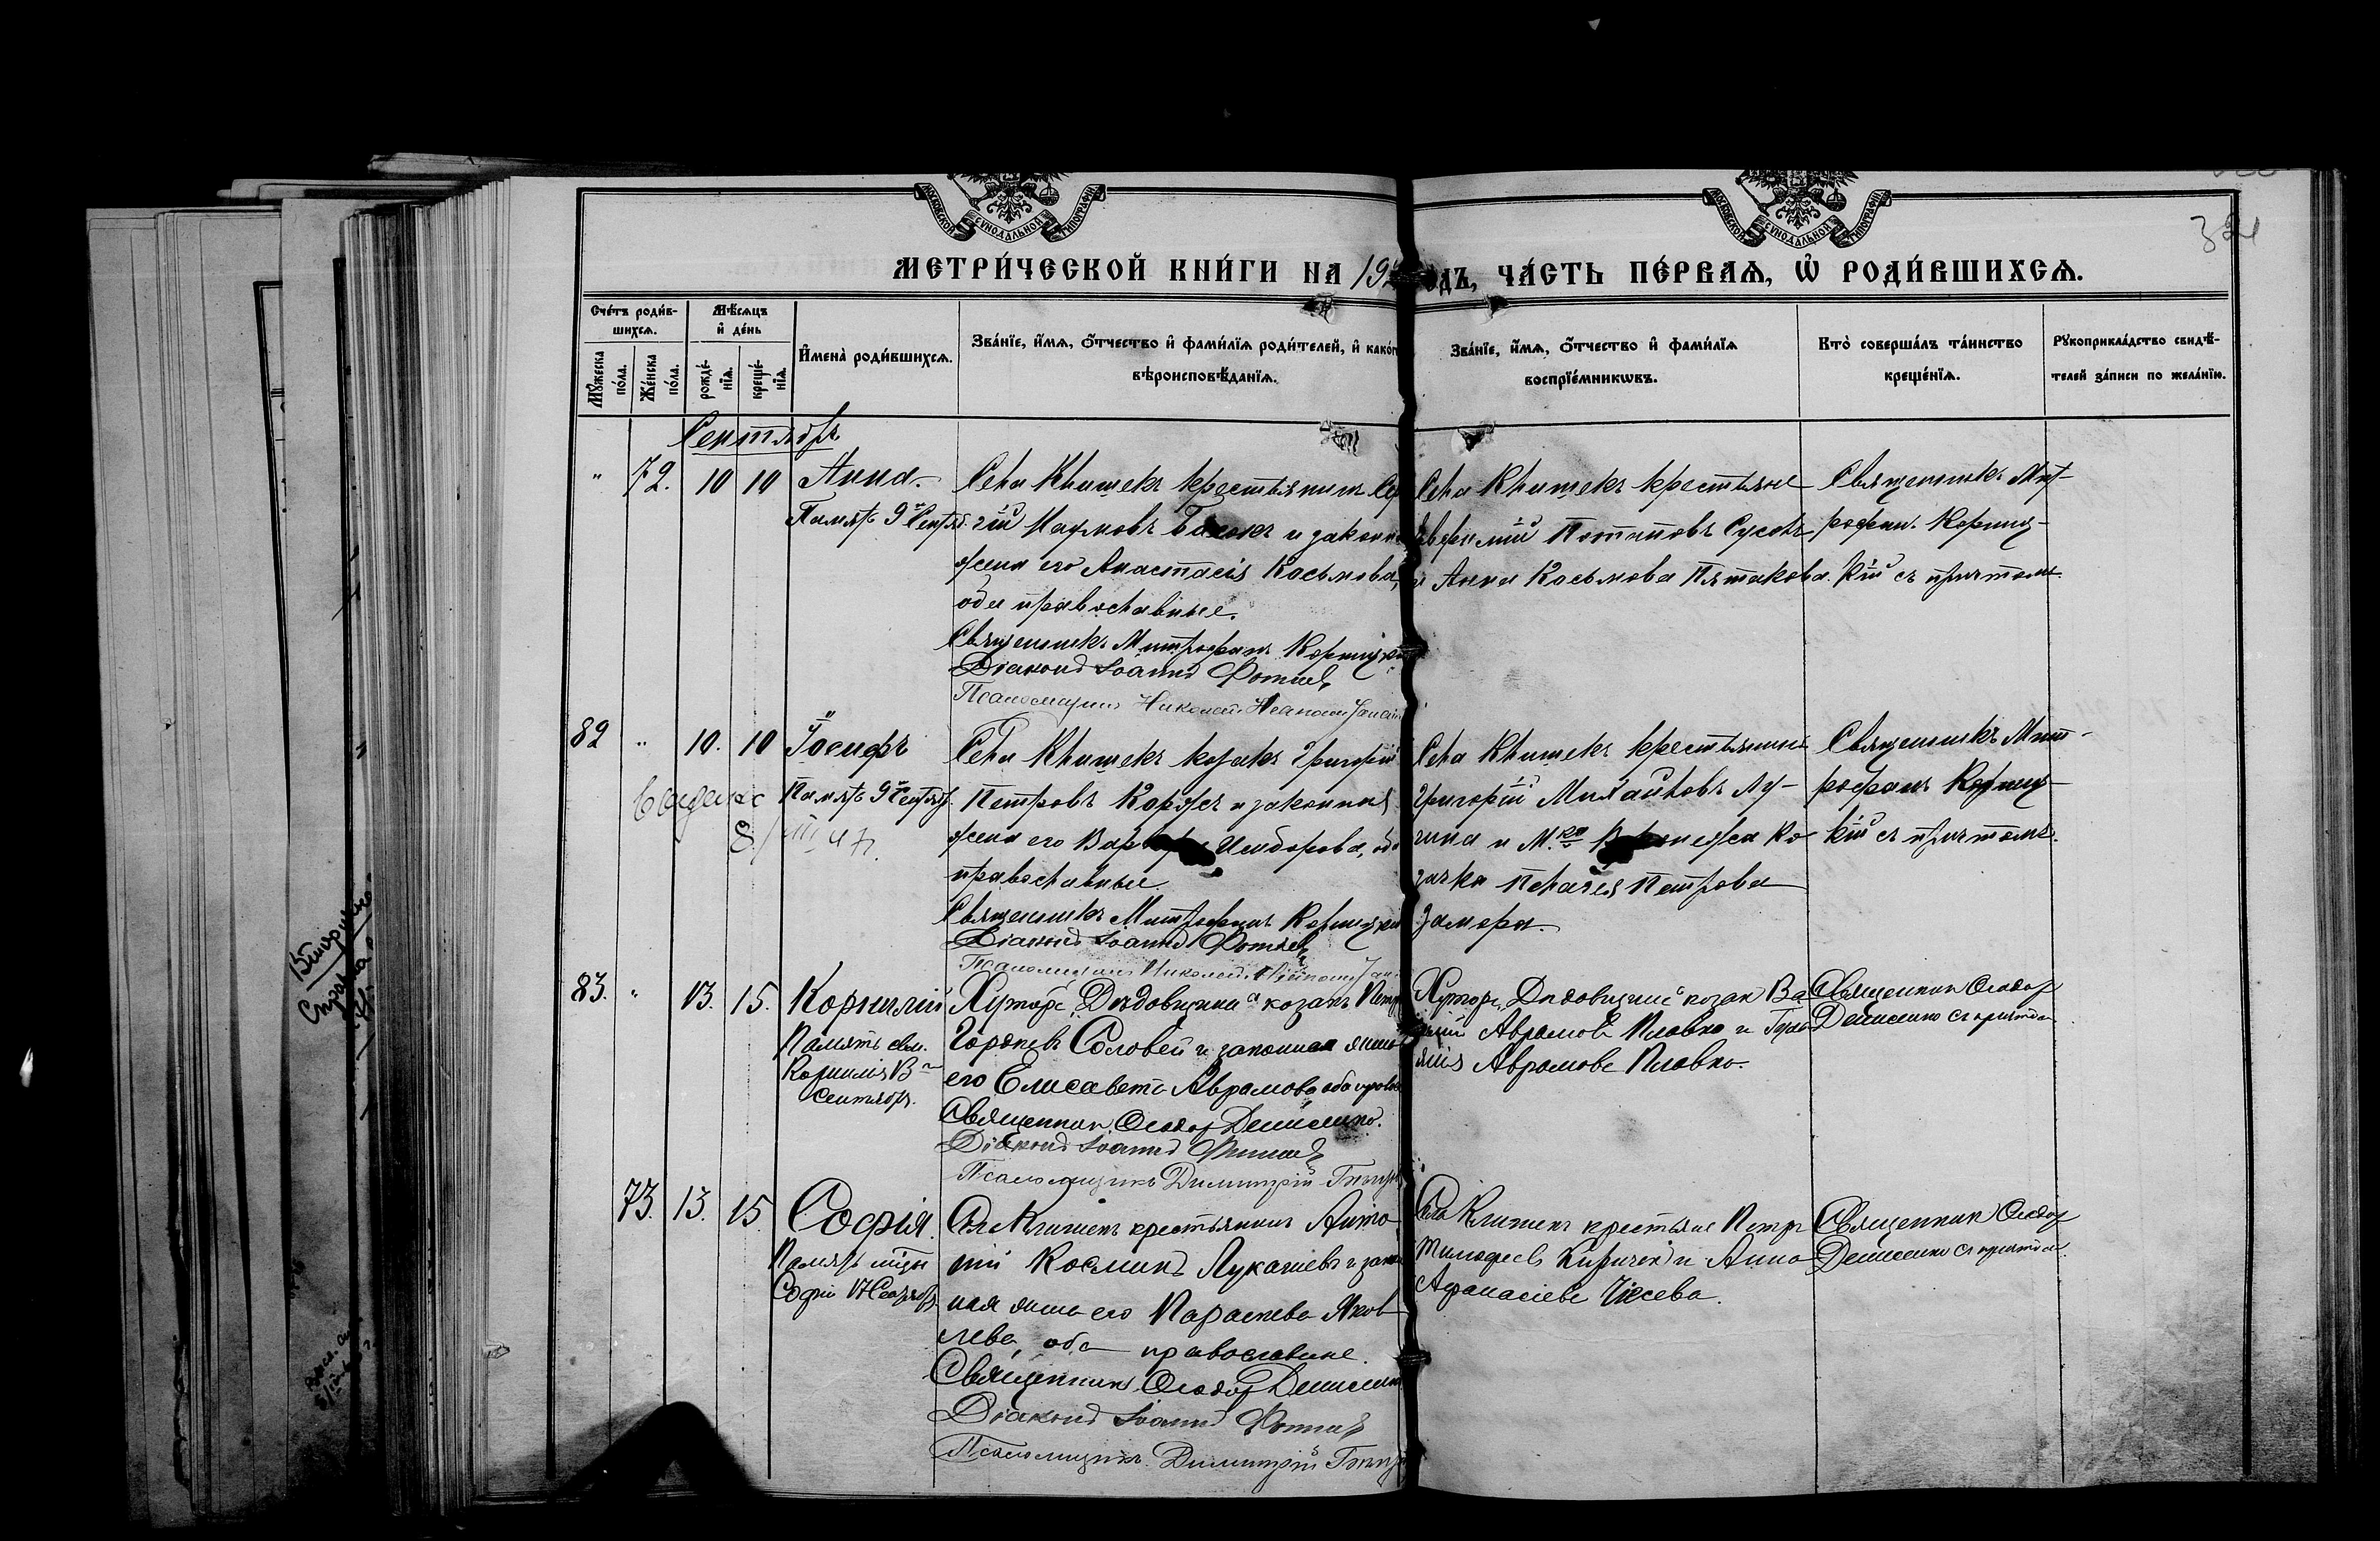 МОСКОВСКОЙ СѴНОДАЛЬНОЙ ТИПОГРАФІИ
МОСКОВСКОЙ СѴНОДАЛЬНОЙ ТИПОГРАФІИ
324
МЕТРИ́ЧЕСКОЙ КНИ́ГИ НА 19
ОДЪ, ЧА́СТЬ ПЕ́РВАѦ, Ѡ҆ РОДИ́ВШИХСѦ.
Сче́тъ роди́в-
шихсѧ.
Мꙋ́жеска по́ла.
Же́нска по́ла.
Мѣ́сѧцъ
и҆ де́нь
рожде́-
нїѧ.
креще́-
нїѧ.
И҆мена̀ роди́вшихсѧ.
Зва́нїе, и҆́мѧ, ѻ҆́тчество и҆ фами́лїѧ роди́телей, и҆ како́г
вѣроисповѣ́данїѧ.
Зва́нїе, и҆́мѧ, ѻ҆́тчество и҆ фами́лїѧ
воспрїе́мникѡвъ.
Кто̀ соверша́лъ та́инство
креще́нїѧ.
Рꙋкоприкла́дство свидѣ́-
телей за́писи по жела́нїю.
Сентябрь
" 72. 10 10 Анна.
Память 9 Сентяб.
Села Клишекъ крестьянинъ Сер
гій Наумовъ и законн
жена его Анастасія Косьмова,
оба православные.
Священникъ Митрофанъ Корицкій
Діаконъ Іоаннъ Фотіевъ
Псаломщикъ Николай
Села Клишекъ крестьяне
Евфимій Потаповъ
и Анна Косьмова Пятакова.
Священникъ Мит-
рофан. Кориц-
кій съ причтомъ.
82 " 10. 10 Іосифъ
Память 9 Сентяб.
Села Клишекъ козакъ Григорій
Петровъ Коржъ и законная
жена его Исидорова, оба
православные.
Священникъ Митрофанъ Корицкій
Діаконъ Іоаннъ Фотіевъ
Псаломщикъ Николай
Села Клишекъ крестьянинъ
Григорій Михайловъ Лу-
чина и М. ко
зачка Пелагея Петрова
Замора.
Священникъ Мит-
рофанъ Кориц-
кій съ причтомъ.
83. " 13. 15. Корнилій
Память свм.
Корнилія 13
Сентябр.
Хутора козакъ Петр
Гордіевъ Соловей и законная жена
его Елисавета Аврамова оба правос
Священник Ѳеодор Денисенко.
Діаконъ Іоаннъ Фотіевъ
Псаломщикъ Димитрій
Хутора козак Ва
силій Аврамов Пловко и
Аврамова Пловко.
Священник Ѳеодор
Денисенко съ причтом
73. 13. 15. Софія.
Память мцы
Софіи 17 Сентябр.
Села Клишекъ крестьянинъ Анто
ній Косминъ Лукашевъ и закон
ная жена его Параскева Яков
лева, оба православные.
Священникъ Ѳеодор Денисенко
Діаконъ Іоаннъ Фотіевъ
Псаломщикъ Димитрій
Села Клишекъ крестьяне Петр
Тимофеевъ Киричокъ и Анна
Афанасіева
Священник Ѳеодор
Денисенко съ причтом